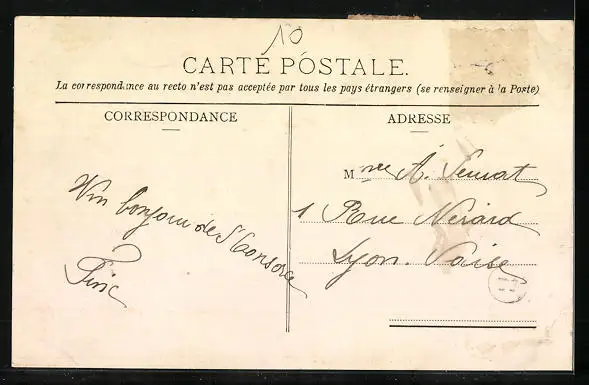 10
CARTE POSTALE.
La correspondance au recto n'est pas acceptée par tous les pays étrangers (se renseigner à la Poste)
CORRESPONDANCE
ADRESSE
Mme A.
1 Rue Nérard
Lyon. Vaise
Un bonjour de St Consorce